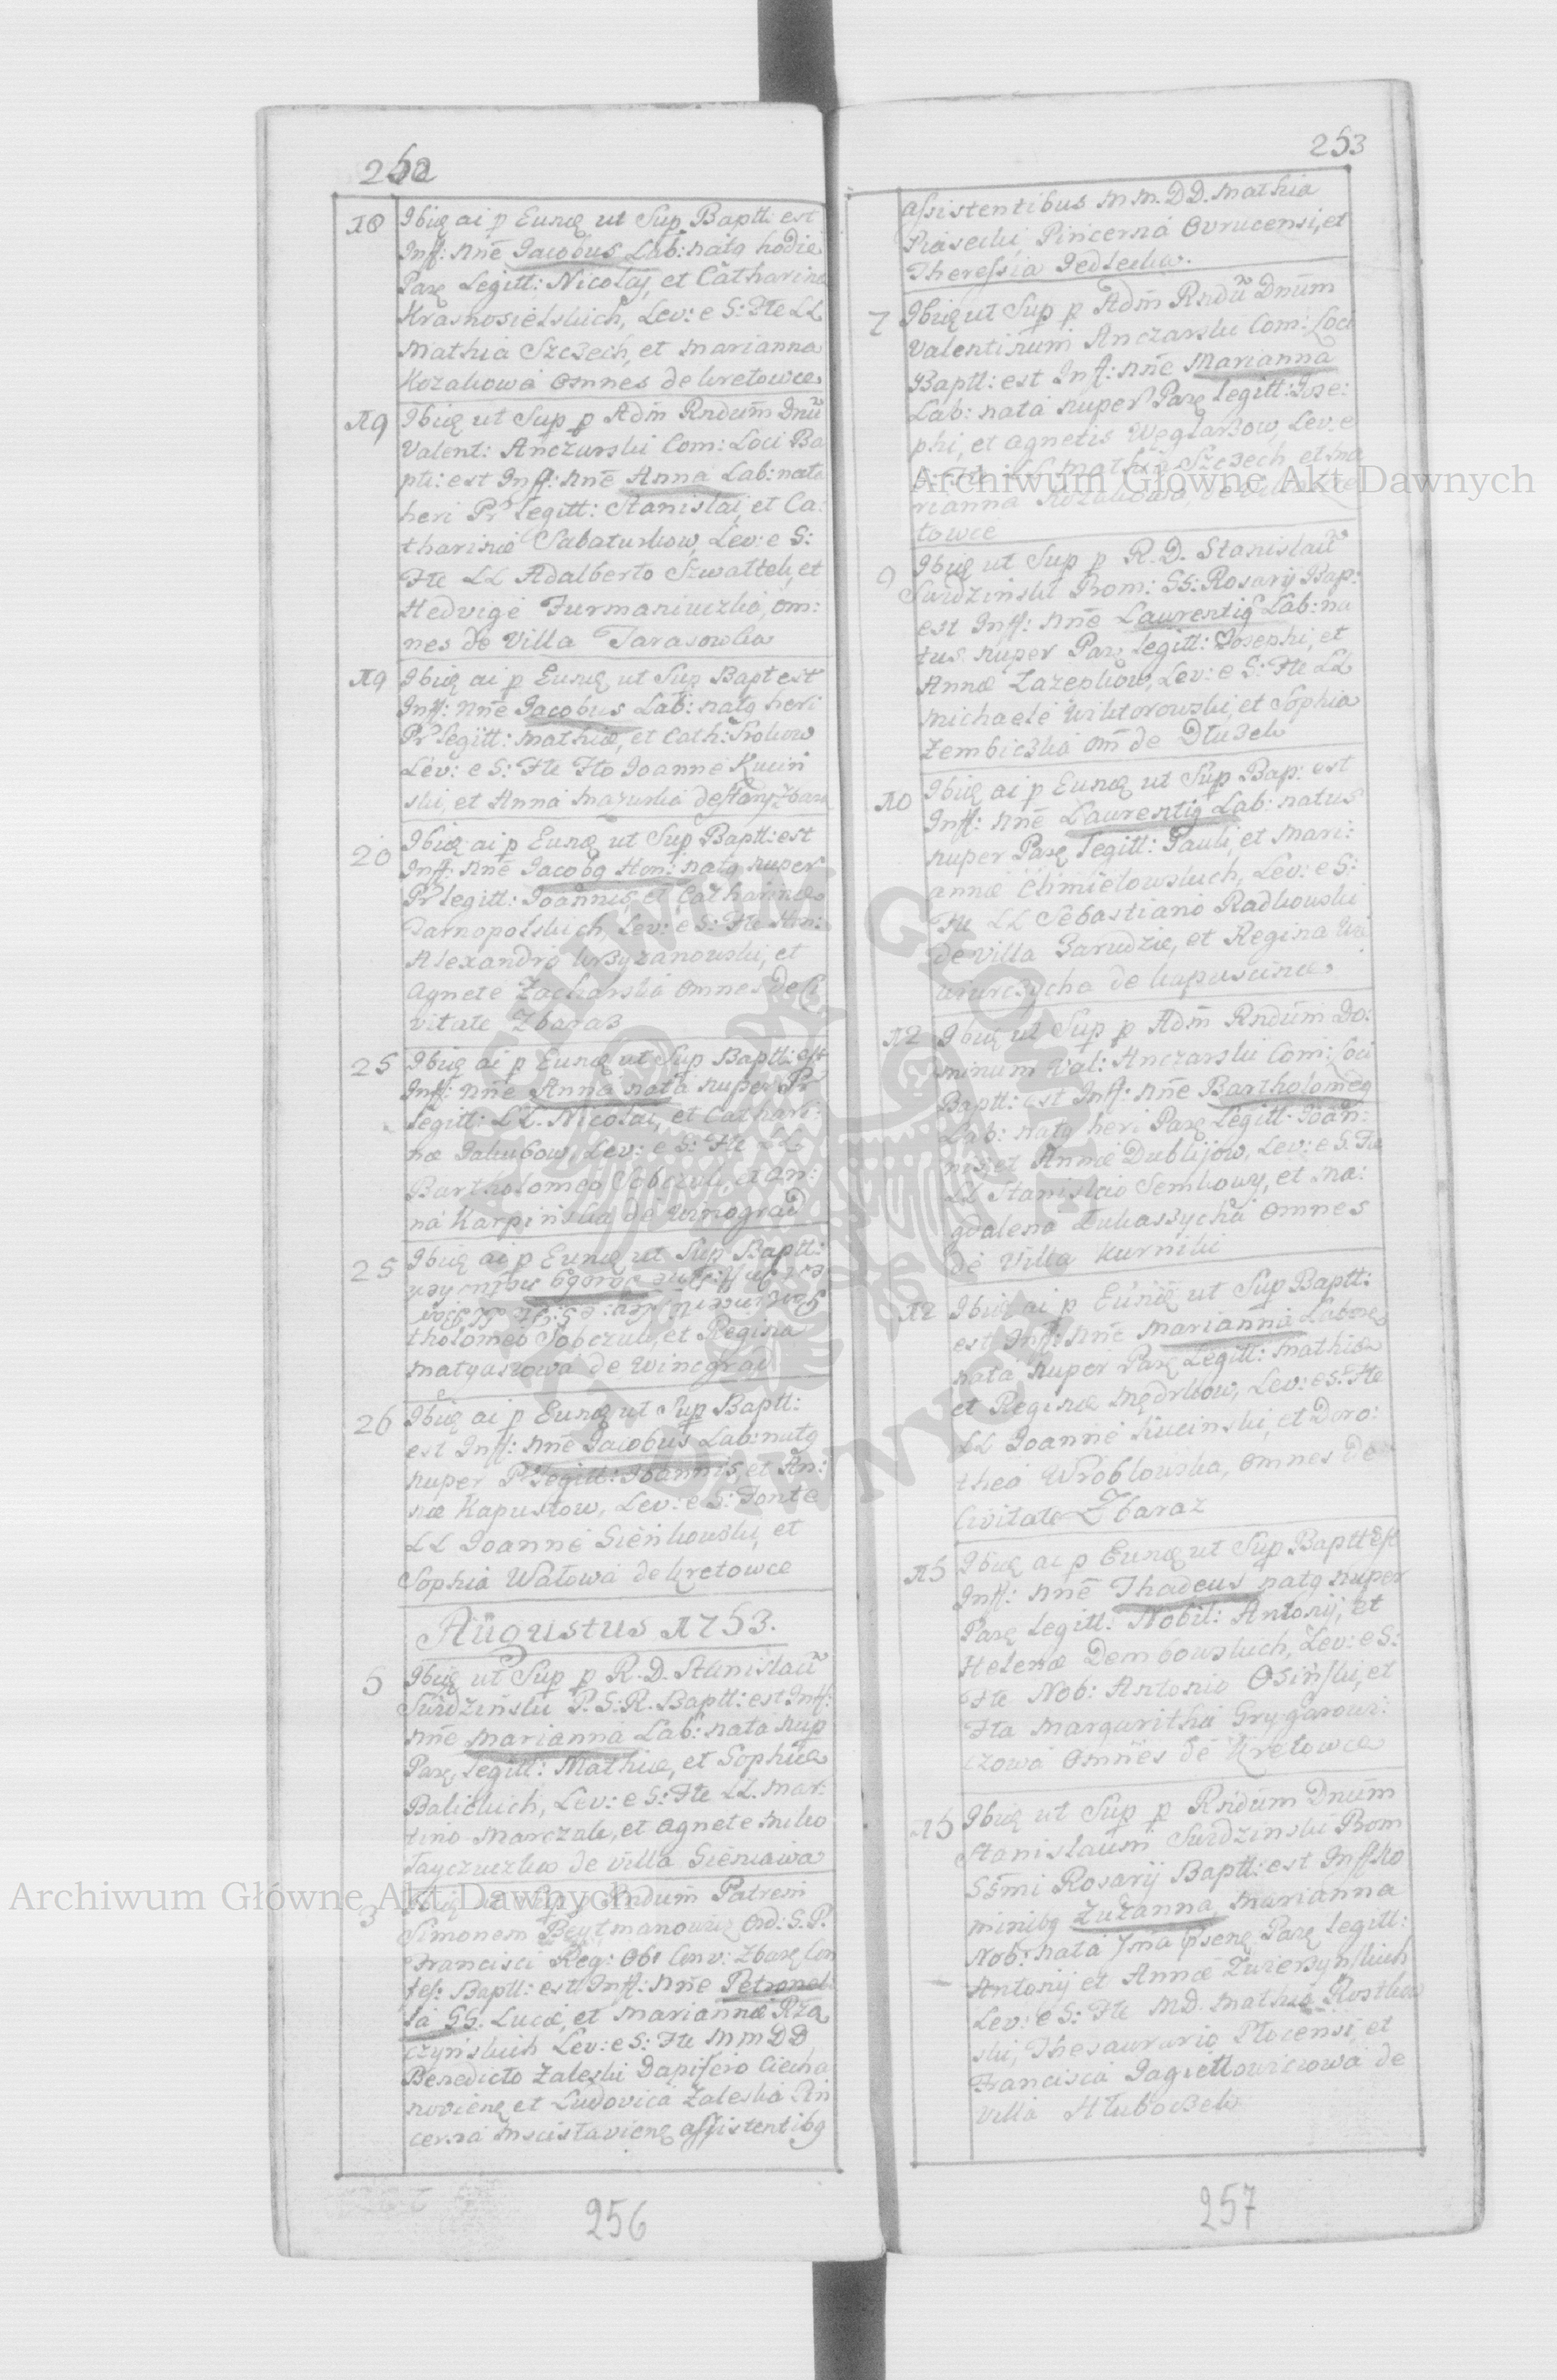 252
18 Ibidẽ ai p Eundẽ ut Sup Baptt: est
Inff: nñe Jacobus Lab: natq hodie
Parẽ Legitt: Nicolaj, et Catharinæ
Krasnosielskich, Lev: e S: Fte LL
Mathia Szczech, et Marianna
Kozakowa omnes de Kretowce
19 Ibidẽ ut Sup p Adm̃ Rndum̃ Dnũ
Valent: Anczarski Com: Loci Ba
ptt: est Inff: nñe Anna Lab: nata
heri Pr legitt: Stanislai, et Ca:
tharinæ Sabaturkow, Lev: e S:
Fte LL Adalberto Szwattek, et
Hedvige Furmaniuczka, om:
nes de Villa Tarasowka
19 Ibidẽ ai p Eundẽ ut Sup Bapt est
Inff: nñe Jacobus Lab: natq heri
Pr legitt: Mathiæ, et Cath: Srokow
Lev: e S: Fte Fto Joanne Kucin
ski, et Anna Mazurka de Stary Zbaraz
20 Ibidẽ ai p Eundẽ ut Sup Baptt: est
Inff: nñe Jacobq Hon: natq nuper
Pr legitt: Joannis, et Catharinæ
Tarnopolskich, Lev: e S: Fte Hon:
Alexandro Krzyzanowski, et
Agnete Zacharska omnes de Ci
vitate Zbaraz
25 Ibidẽ ai p Eundẽ ut Sup Baptt: est
Inff: nñe Anna nata nuper Pr
legitt: LL. Nicolai, et Cathari:
næ Jakubow, Lev: e S: Fte LL
Bartholomeo Sobczuk, et An:
na Karpinska de Winograd
25 Ibidẽ ai p Eundẽ ut Sup Baptt:
tholomeo Sobczuk, et Regina
Matyaszowa de Winograd
26 Ibidẽ ai p Eundẽ ut Sup Baptt:
est Inff: nñe Jacobus Lab: natq
nuper Pr legitt: Joannis et An:
næ Kapustow, Lev: e S: Fonte
LL Joanne Sienkowski, et
Sophia Watowa de Kretowce
Augustus 1753.
5 Ibidẽ ut Sup p R. D. Stanislaũ
Surdzinski P. S: R. Baptt: est Inff:
nñe Marianna Lab: nata nup
Parẽ legitt: Mathiæ, et Sophiæ
Balickich, Lev: e S: Fte LL. Mar:
tino Marczak, et Agnete Miko
łayczuczka de villa Sieniawa
3 Ibidẽ ut Sup p Rndum̃ Patrem
Simonem Beytmanowicz Ord: S. P.
Francisci Reg: Obs Conv: Zbarẽ Con
fes: Baptt: est Inff: nñe Petronel
la GG. Lucæ, et Mariannæ Rza
czynskich Lev: e S: Fte MM DD
Benedicto Zaleski Dapifero Ciecha
noviene et Ludovica Zaleska Pin
cerna Mscislaviene assistentibq
256
253
assistentibus M M. DD. Mathia
Piasecki Pincerna Ovrucensi, et
Theressia Jedlecka.
7 Ibidẽ ut Sup p Adm̃ Rndũ Dnũm
Valentinum Anczarski Com: Loci
Baptt: est Inff: nñe Marianna
Lab: nata nuper Parẽ legitt: Jose:
phi, et Agnetis Węglarzow, Lev: e
S: Fte LL Mathia Szczech, et Ma
rianna Kozakowa de Kre
towce
9 Ibidẽ ut Sup p R. D. Stanislaũ
Surdzinski Prom: SS: Rosarij Bap:
est Inff: nñe Laurentiq Lab: na
tus nuper Parẽ legitt: Josephi, et
Annæ Lazepkow, Lev: e S: Fte LL
Michaele Wiktorowski, et Sophia
Zembiczka om̃ de Dłuzek
10 Ibidẽ ai p Eundẽ ut Sup Bap: est
Inff: nñe Laurentiq Lab: natus
nuper Parẽ legitt: Pauli, et Mari:
annæ Chmielowskich, Lev: e S:
Fte LL Sebastiano Radkowski
de villa Zarudzie, et Regina
de Kapuscince
12 Ibidẽ ut Sup p Adm̃ Rndũm Do:
minum Val: Anczarski Com: Loci
Baptt: est Inff: nñe Bartholomeq
Lab: natq heri Parẽ Legitt: Joan:
nis, et Annæ Dublijow, Lev: e S. Fte
LL Stanislao Semkowy, et Ma:
gdalena Łukaszycha omnes
de Villa Kurniki
12 Ibidẽ ai p Eundẽ ut Sup Baptt:
est Inff: nñe Marianna Labore
nata nuper Parẽ Legitt: Mathiæ
et Reginæ Mędrkow, Lev: e S: Fte
LL Joanne Kucinski, et Doro:
thea Wroblowska, omnes de
Civitate Zbaraz
15 Ibidẽ ai p Eundẽ ut Sup Baptt est
Inff: nñe Thadeus natq nuper
Parẽ legitt: Nobil: Antonij, et
Helenæ Dembowskich, Lev: e S:
Fte Nob: Antonio Osinski, et
Fta Margaritha Grygarowi:
czowa Omnes de Kretowce
15 Ibidẽ ut Sup p Rndũm Dnũm
Stanislaum Surdzinski Prom
SSmi Rosarij Baptt: est Inff: No
minibq Zuzanna Marianna
Nob: nata Parẽ legitt:
Antonij et Annæ Zwierzynskich
Lev: e S: Fte MD. Mathia Rostkow
ski, Thesaurario Plocensi, et
Francisca Jagiellowiczowa de
villa Hłuboczek
257
Archiwum Główne Akt Dawnych
Archiwum Główne Akt Dawnych
ARCHIWUM GŁÓWNE AKT DAWNYCH